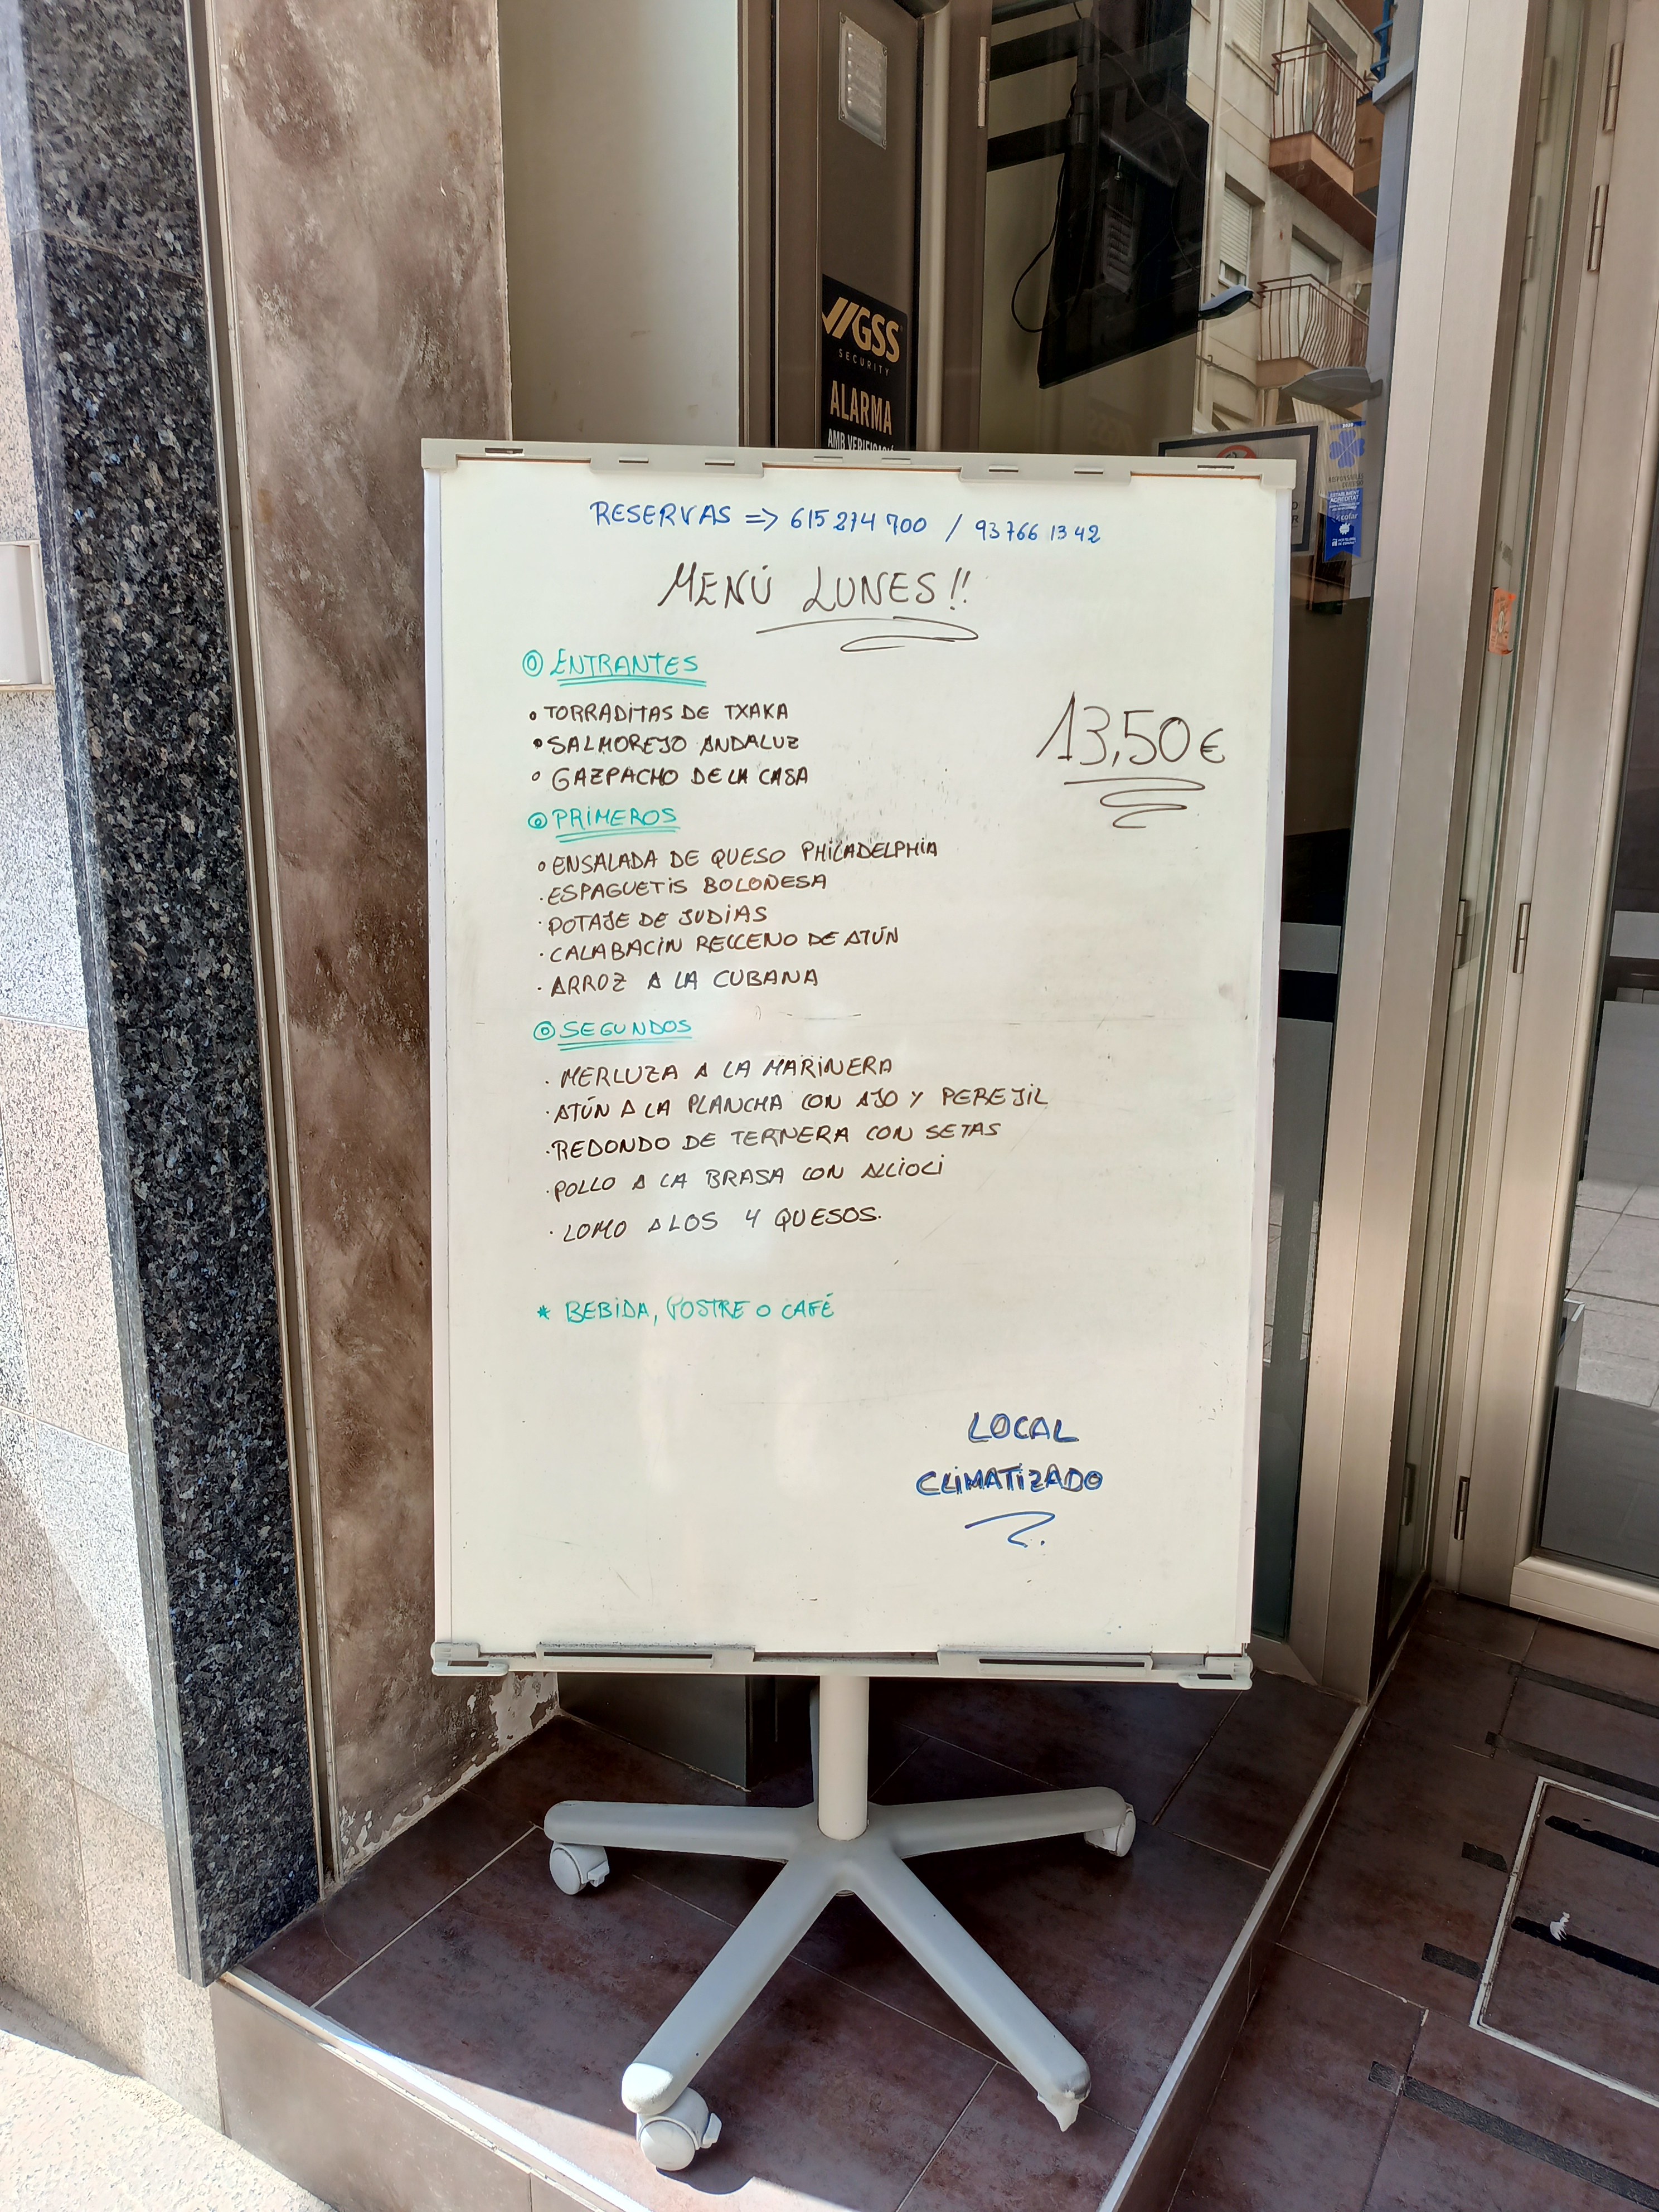 GSS
SECURITY
ALARMA
AMB VERIFICACIÓ
RESERVAS => 615 274 700 / 93 766 13 42
MENÚ LUNES!!
ENTRANTES
• TORRADITAS DE TXAKA
• SALMOREJO ANDALUZ
• GAZPACHO DE LA CASA
13,50€
PRIMEROS
• ENSALADA DE QUESO PHILADELPHIA
· ESPAGUETIS BOLOÑESA
· POTAJE DE JUDIAS
· CALABACIN RELLENO DE ATÚN
· ARROZ A LA CUBANA
SEGUNDOS
· MERLUZA A LA MARINERA
· ATÚN A LA PLANCHA CON AJO Y PEREJIL
· REDONDO DE TERNERA CON SETAS
· POLLO A LA BRASA CON ALLIOLI
· LOMO A LOS 4 QUESOS.
* BEBIDA, POSTRE O CAFÉ
LOCAL
CLIMATIZADO